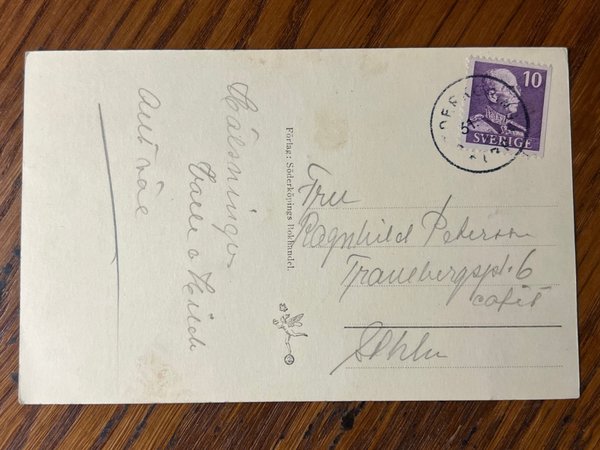 Hälsningar
Allt väl
Förlag: Söderköpings Bokhandel.
10
SVERIGE
Fru
Ragnhild Peterson
Tranebergspl. 6
café
Sthlm